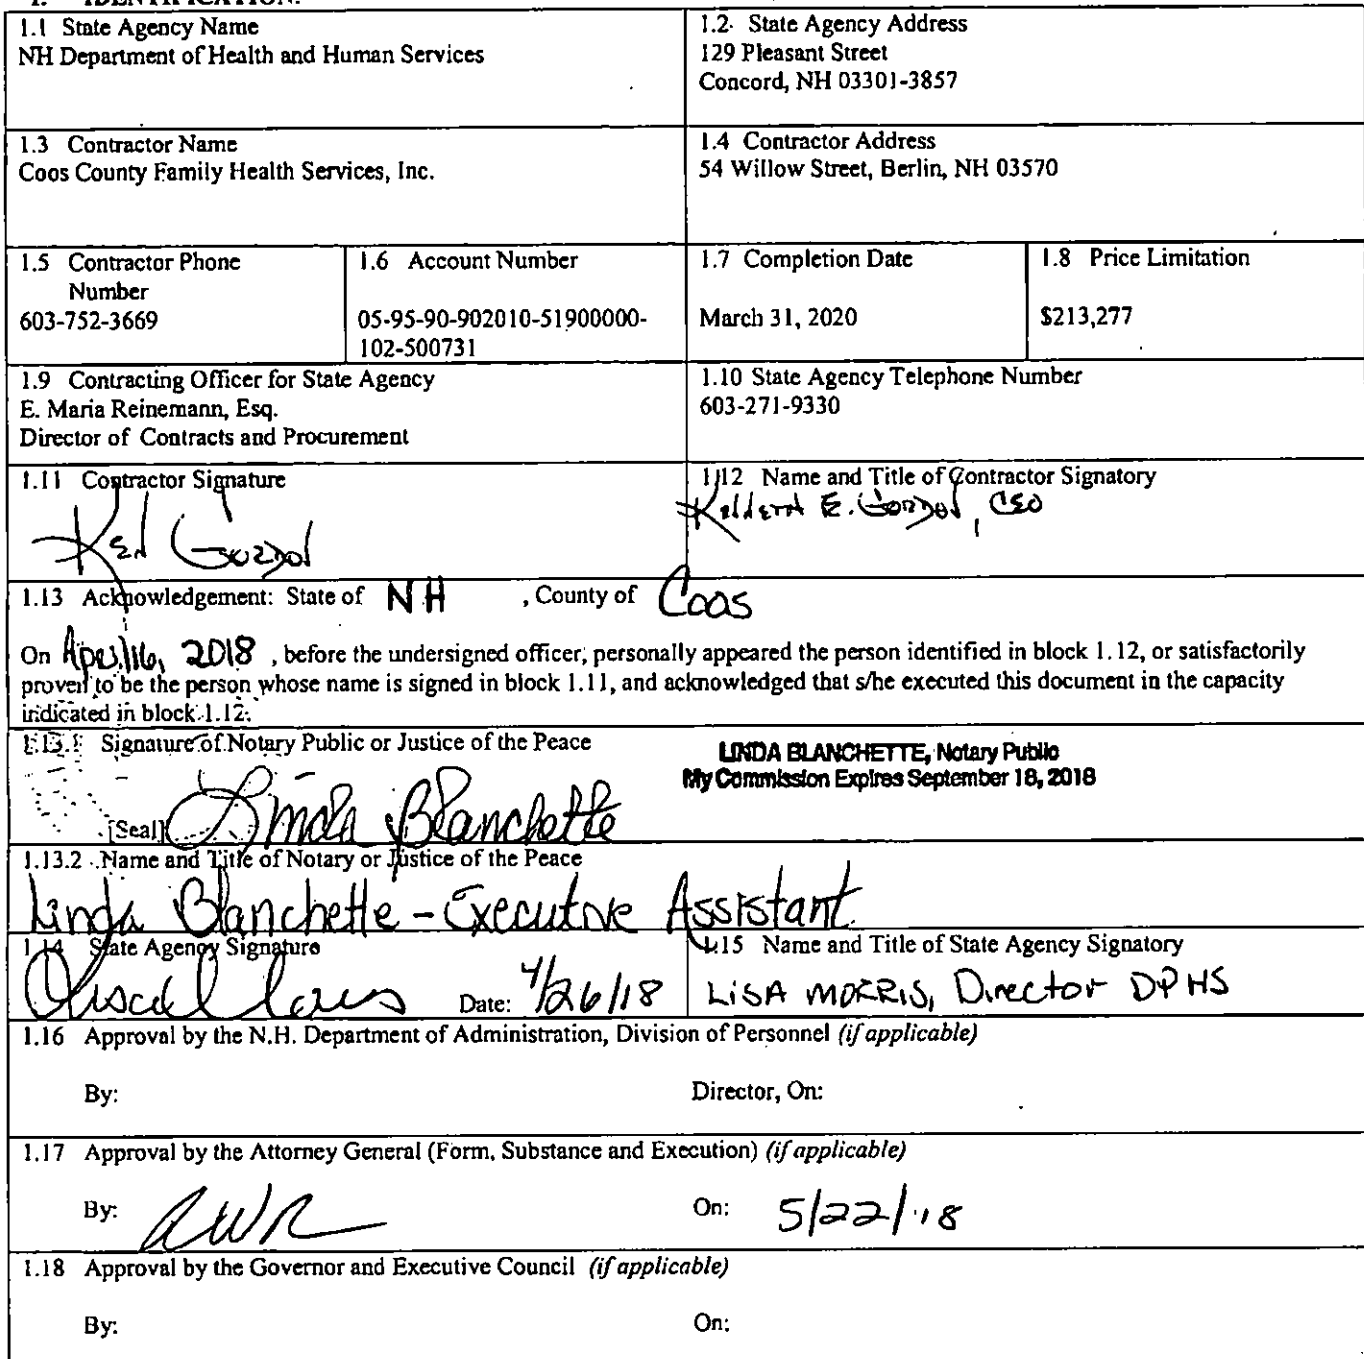 1. IDENTIFICATION.
1.1 State Agency Name
NH Department of Health and Human Services
1.2 State Agency Address
129 Pleasant Street
Concord, NH 03301-3857
1.3 Contractor Name
Coos County Family Health Services, Inc.
1.4 Contractor Address
54 Willow Street, Berlin, NH 03570
1.5 Contractor Phone
Number
603-752-3669
1.6 Account Number
05-95-90-902010-51900000-
102-500731
1.7 Completion Date
March 31, 2020
1.8 Price Limitation
$213,277
1.9 Contracting Officer for State Agency
E. Maria Reinemann, Esq.
Director of Contracts and Procurement
1.10 State Agency Telephone Number
603-271-9330
1.11 Contractor Signature
Ken Gordon
1.12 Name and Title of Contractor Signatory
E. Gordon, CEO
1.13 Acknowledgement: State of NH , County of Coos
On April 16, 2018 , before the undersigned officer, personally appeared the person identified in block 1.12, or satisfactorily
proven to be the person whose name is signed in block 1.11, and acknowledged that s/he executed this document in the capacity
indicated in block 1.12.
1.13.1 Signature of Notary Public or Justice of the Peace
LINDA BLANCHETTE, Notary Public
My Commission Expires September 18, 2018
[Seal] Linda Blanchette
1.13.2 Name and Title of Notary or Justice of the Peace
Linda Blanchette - Executive Assistant
1.14 State Agency Signature
Date: 4/26/18
1.15 Name and Title of State Agency Signatory
LISA MORRIS, Director DPHS
1.16 Approval by the N.H. Department of Administration, Division of Personnel (if applicable)
By: Director, On:
1.17 Approval by the Attorney General (Form, Substance and Execution) (if applicable)
By: On: 5/22/18
1.18 Approval by the Governor and Executive Council (if applicable)
By: On: